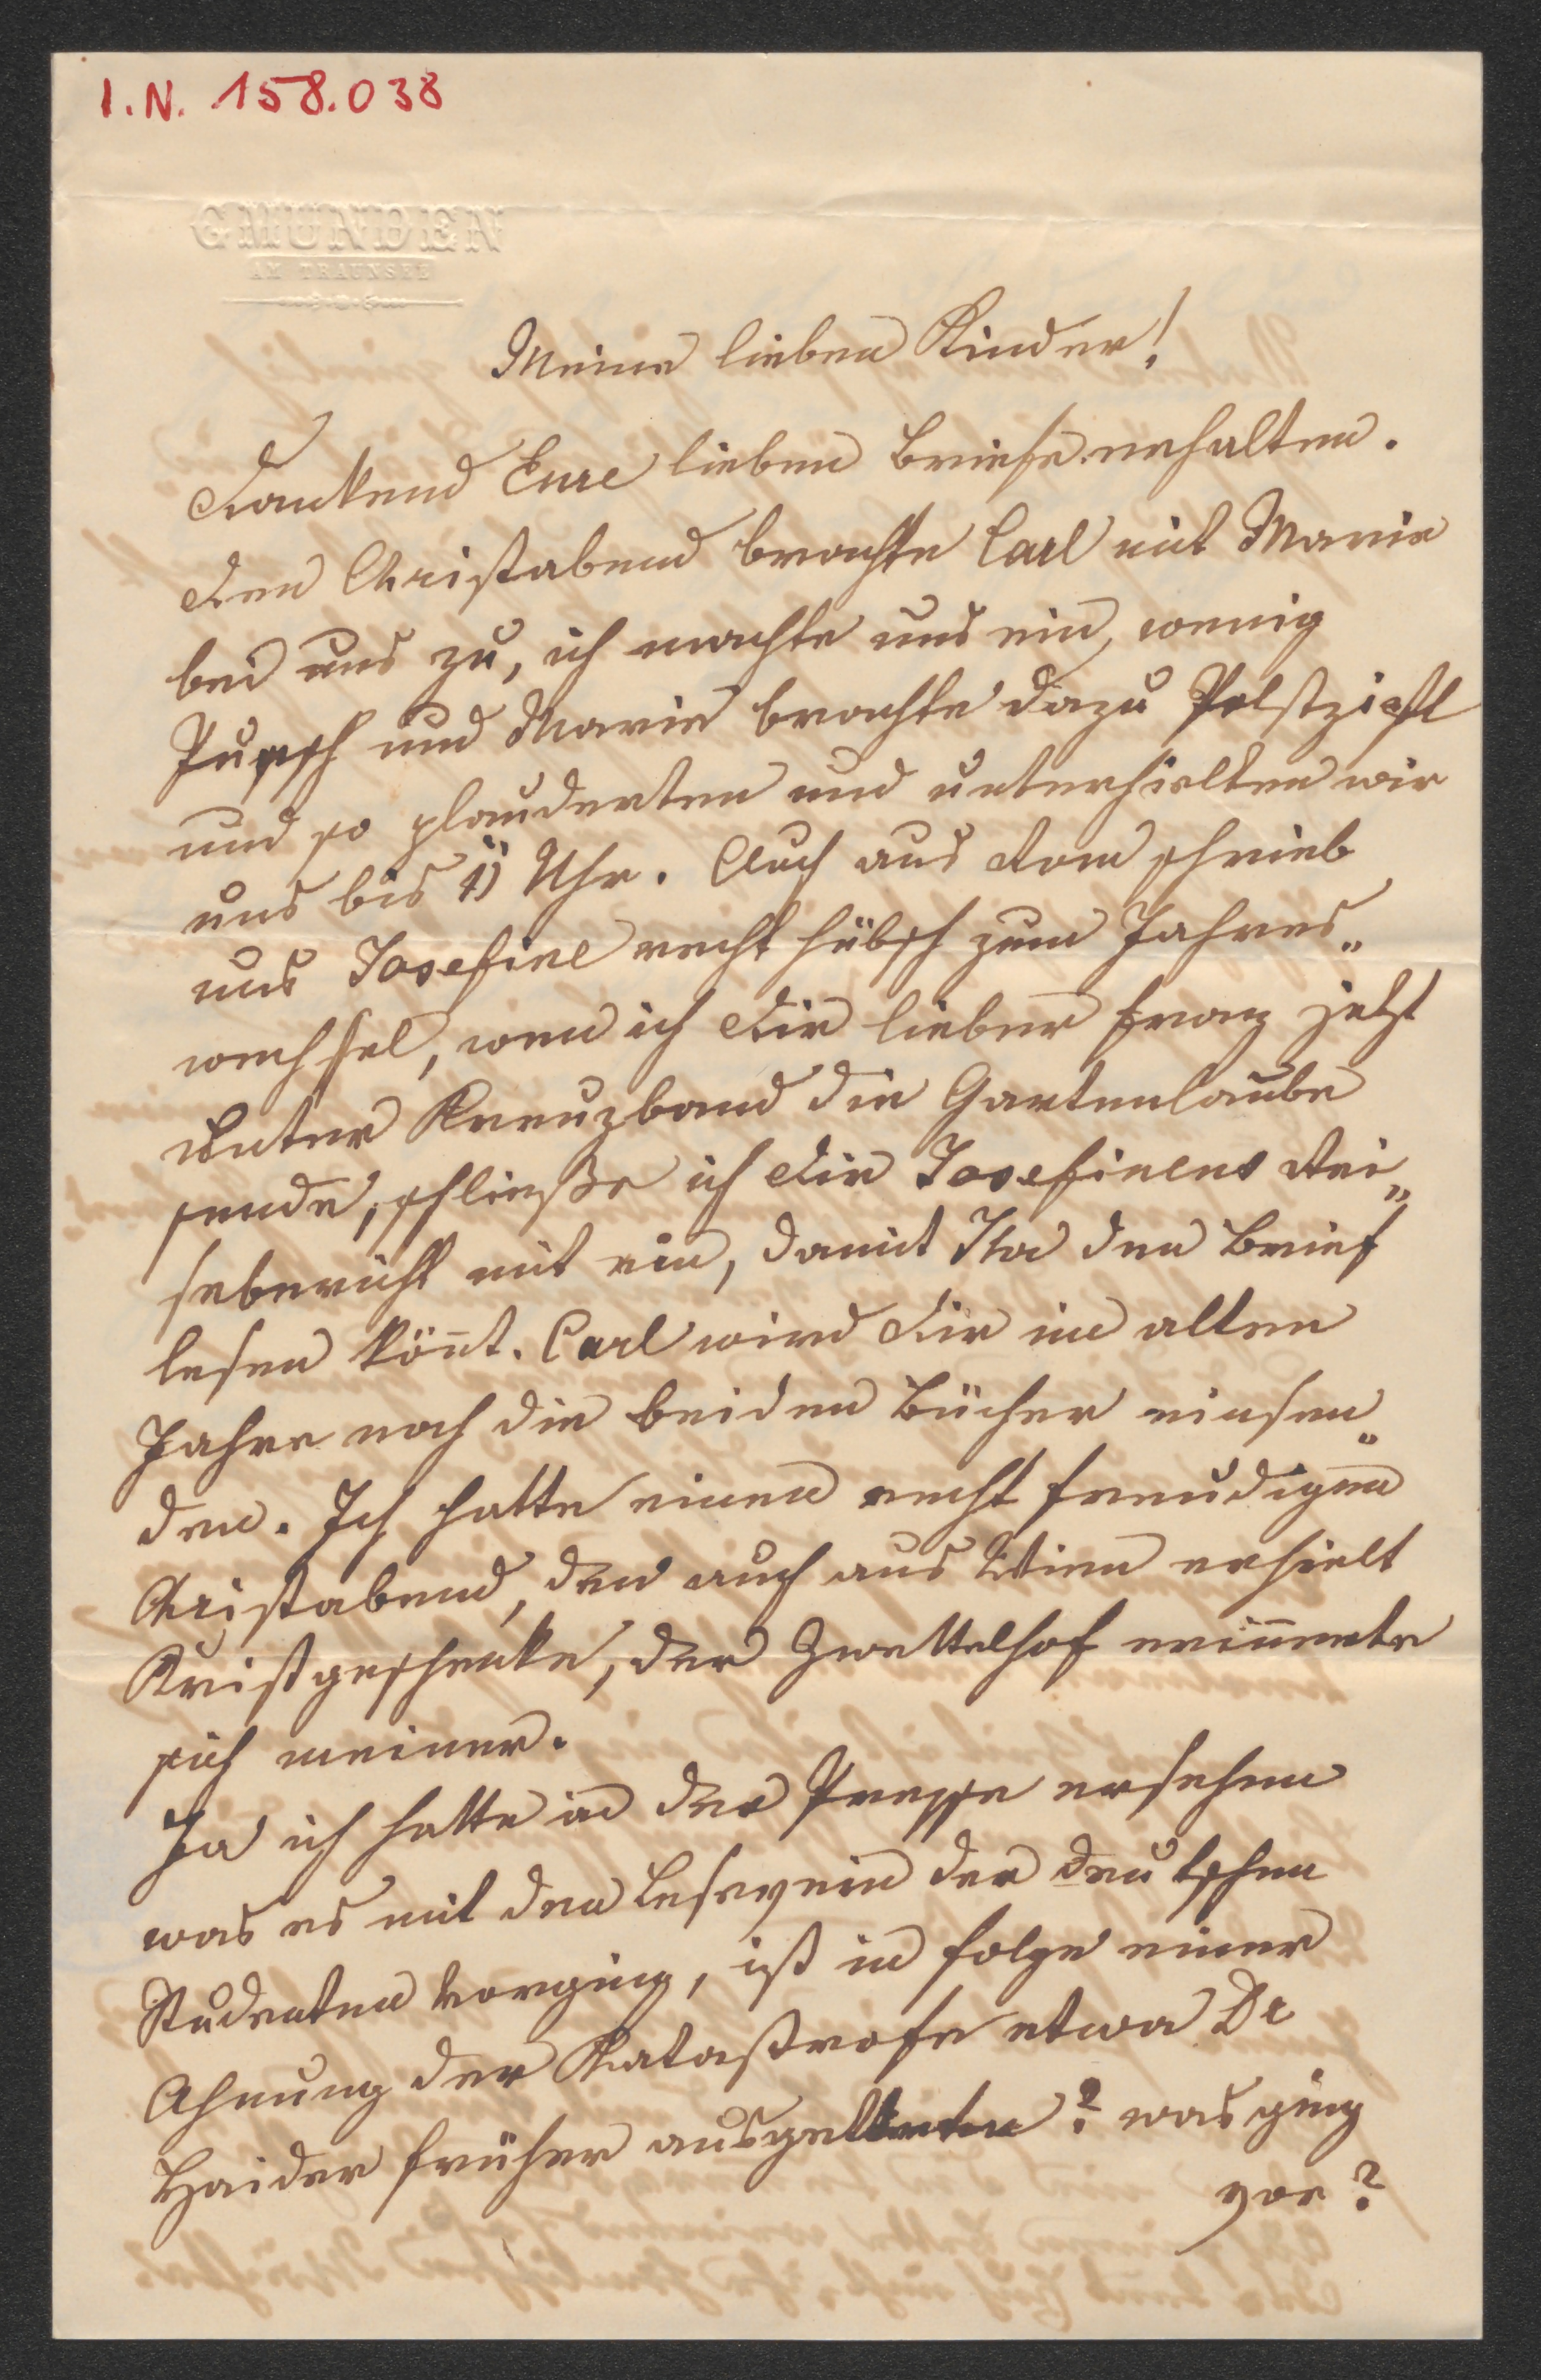 I.N. 158.038
GMUNDEN
AM TRAUNSEE
Meine lieben Kinder!
Dankend Eure lieben Briefe erhalten.
Den Christabend brachte Carl mit Marie
bei uns zu, ich machte uns ein wenig
Punsch und Marie brachte dazu Polstzipfl
und so plauderten und unterhielten wir
uns bis 11 Uhr. Auch aus Rom schrieb
uns Josefine recht hübsch zum Jahres„
wechsel, wen ich Dir lieber Franz jetzt
unter Kreuzband die Gartenlaube
sende, schließe ich Dir Josefinens Rei„
sebericht mit ein, damit Ihr den Brief
lesen kön̅t. Carl wird Dir im alten
Jahre noch die beiden Bücher einsen„
den. Ich hatte einen recht freudigen
Christabend, den auch aus Wien erhielt
Kristgeschenke, der Zwettelhof erin̅erte
sich meiner.
Ja ich hatte in der Presse ersehen
was es mit den Leseverein der deutschen
Studenten vorging, ist in folge einer
Ahnung der Katastrofe etwa Dr
Haider früher ausgetreten? was ging
vor?